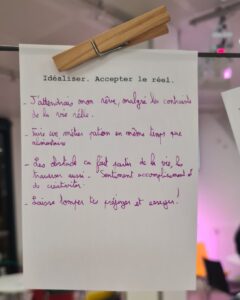 Idéaliser. Accepter le réel.
- J'attendrais mon rêve, malgré les contraintes
de la vie réelle.
- Faire un métier passion en même temps que
alimentaire
- Les obstacles ça fait partie de la vie, les
traverser aussi. Sentiment accomplissement et
de créativité.
- Laisse tomber tes préjugés et essayes!